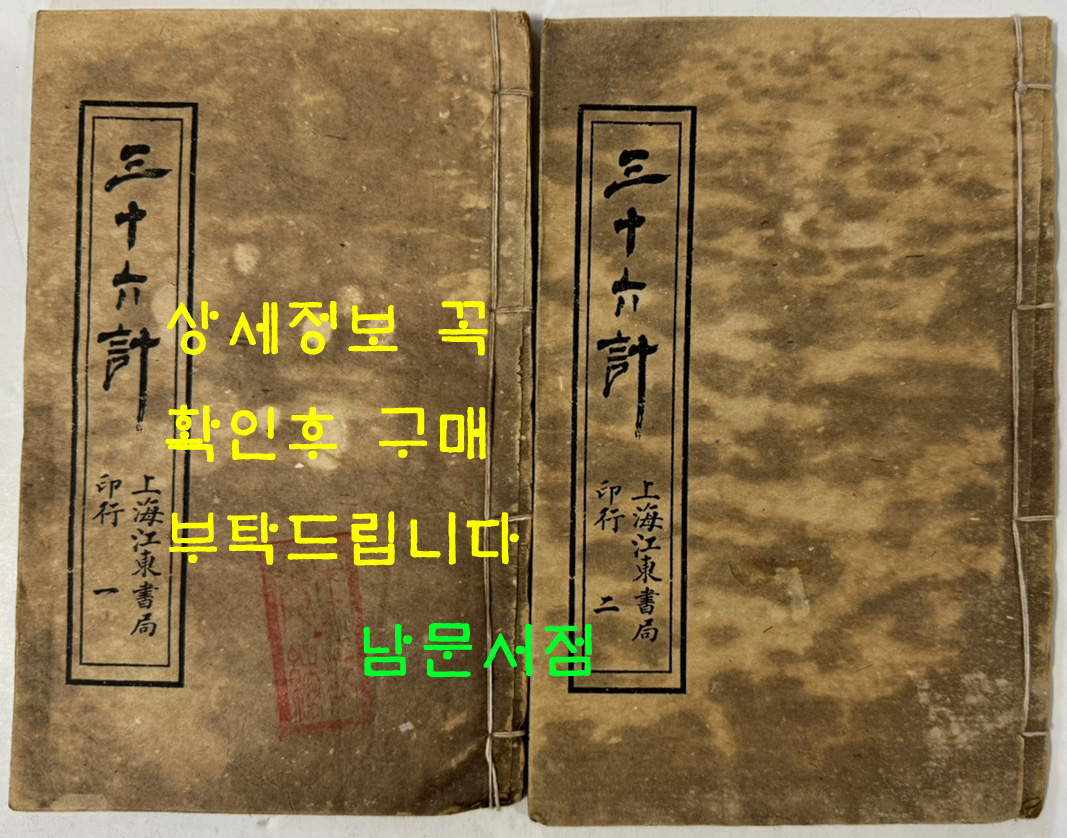 三十六計
上海江東書局
印行 一
三十六計
上海江東書局
印行 二
상세정보 꼭
확인후 구매
부탁드립니다
남문서점